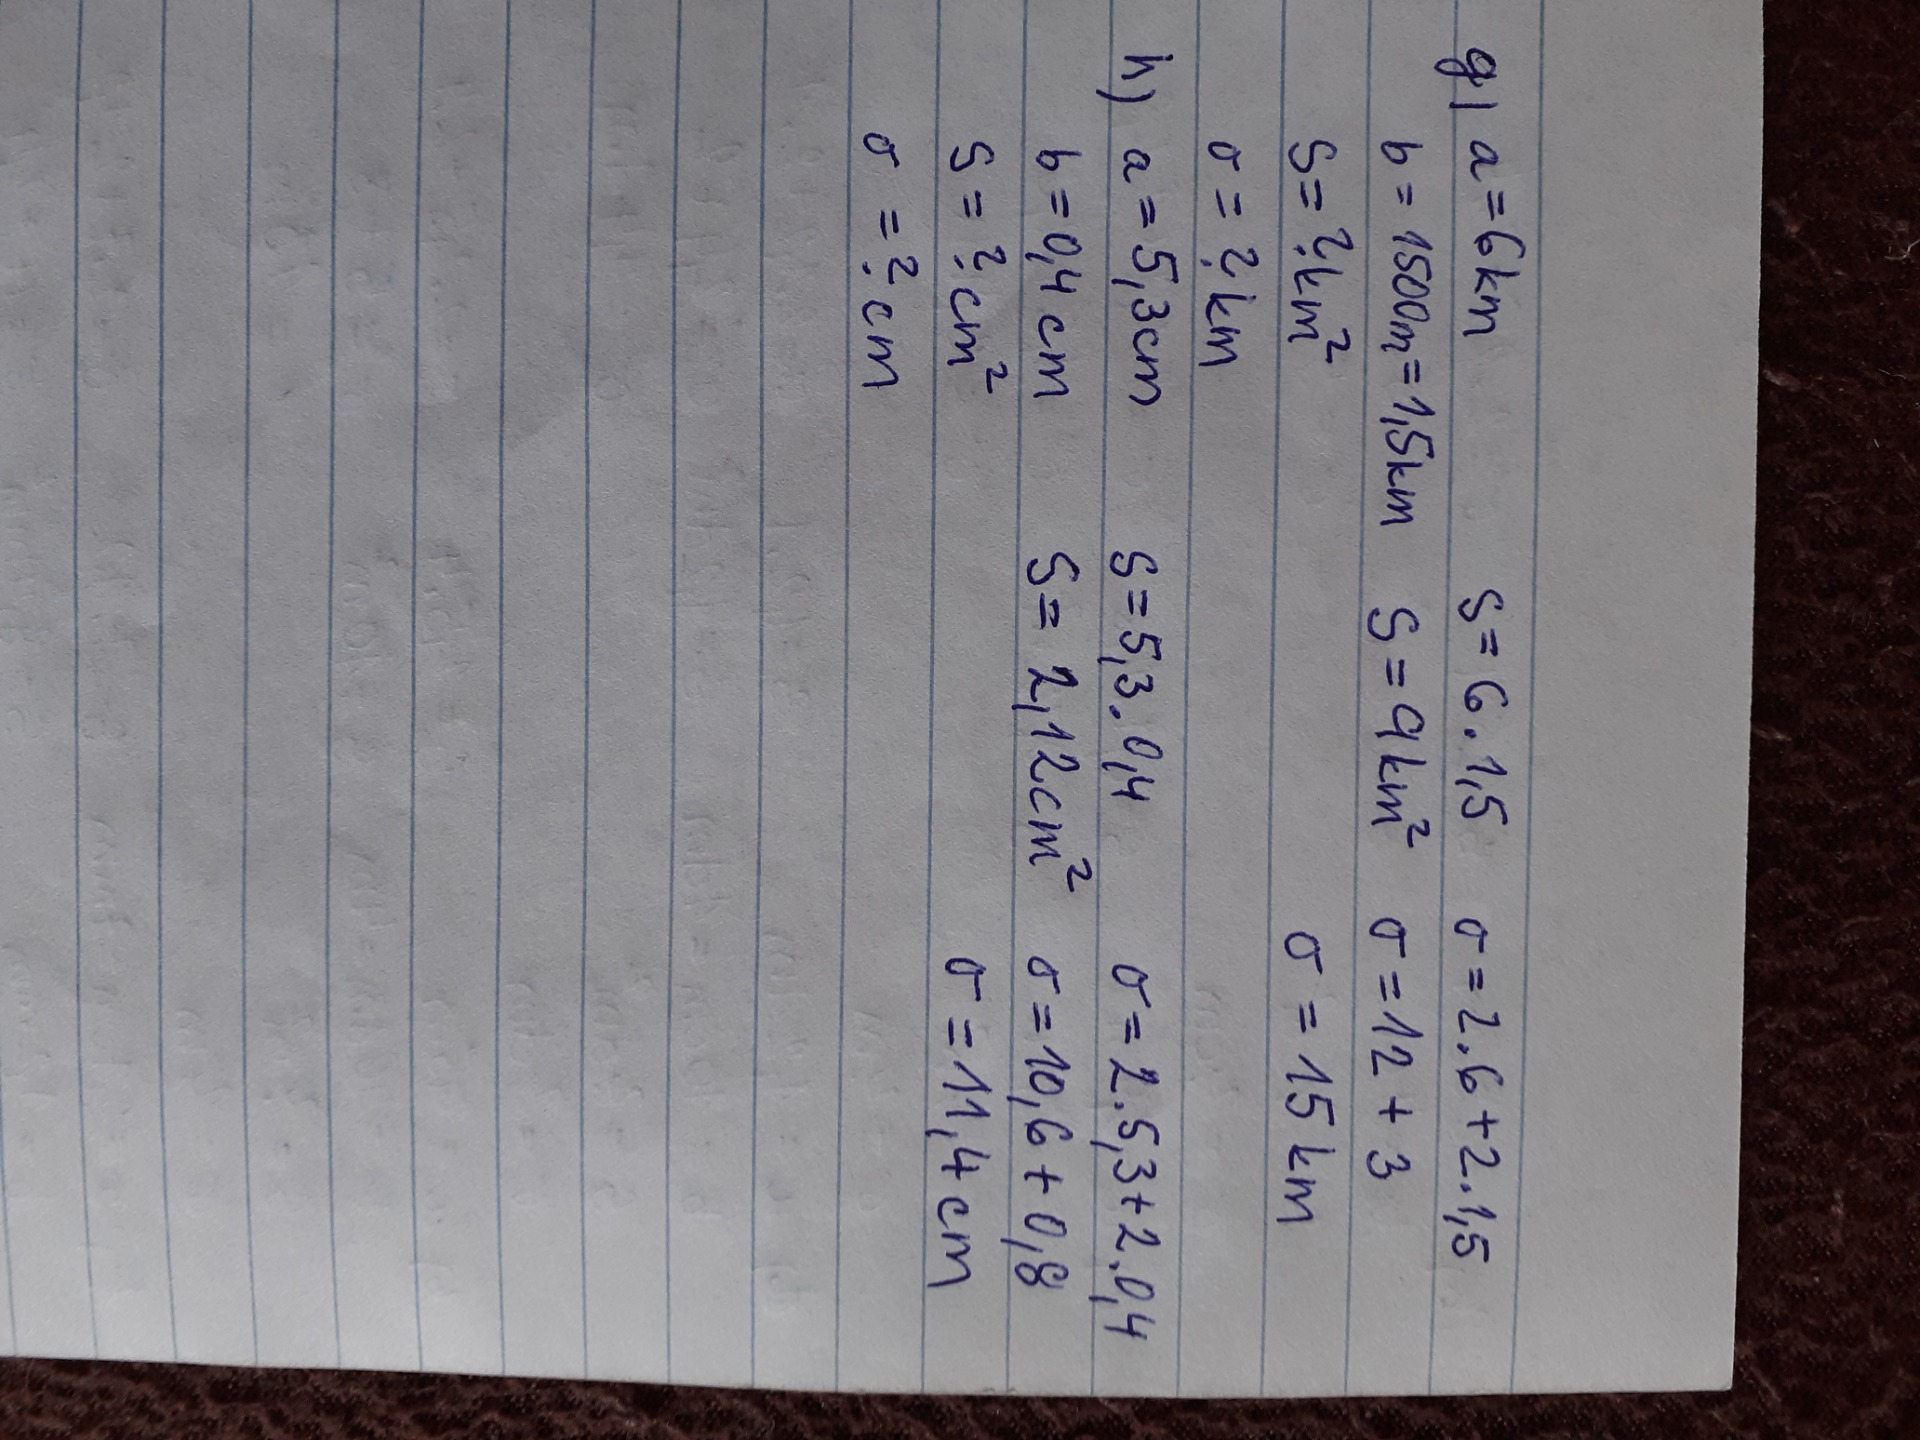 g) a=6km S=6.1,5 σ=2.6+2.1,5
b=1500m=1,5km S=9km² σ=12+3
S=?km² σ=15km
σ=?km
h) a=5,3cm S=5,3.0,4 σ=2.5,3+2.0,4
b=0,4cm S=2,12cm² σ=10,6+0,8
S=?cm² σ=11,4cm
σ=?cm